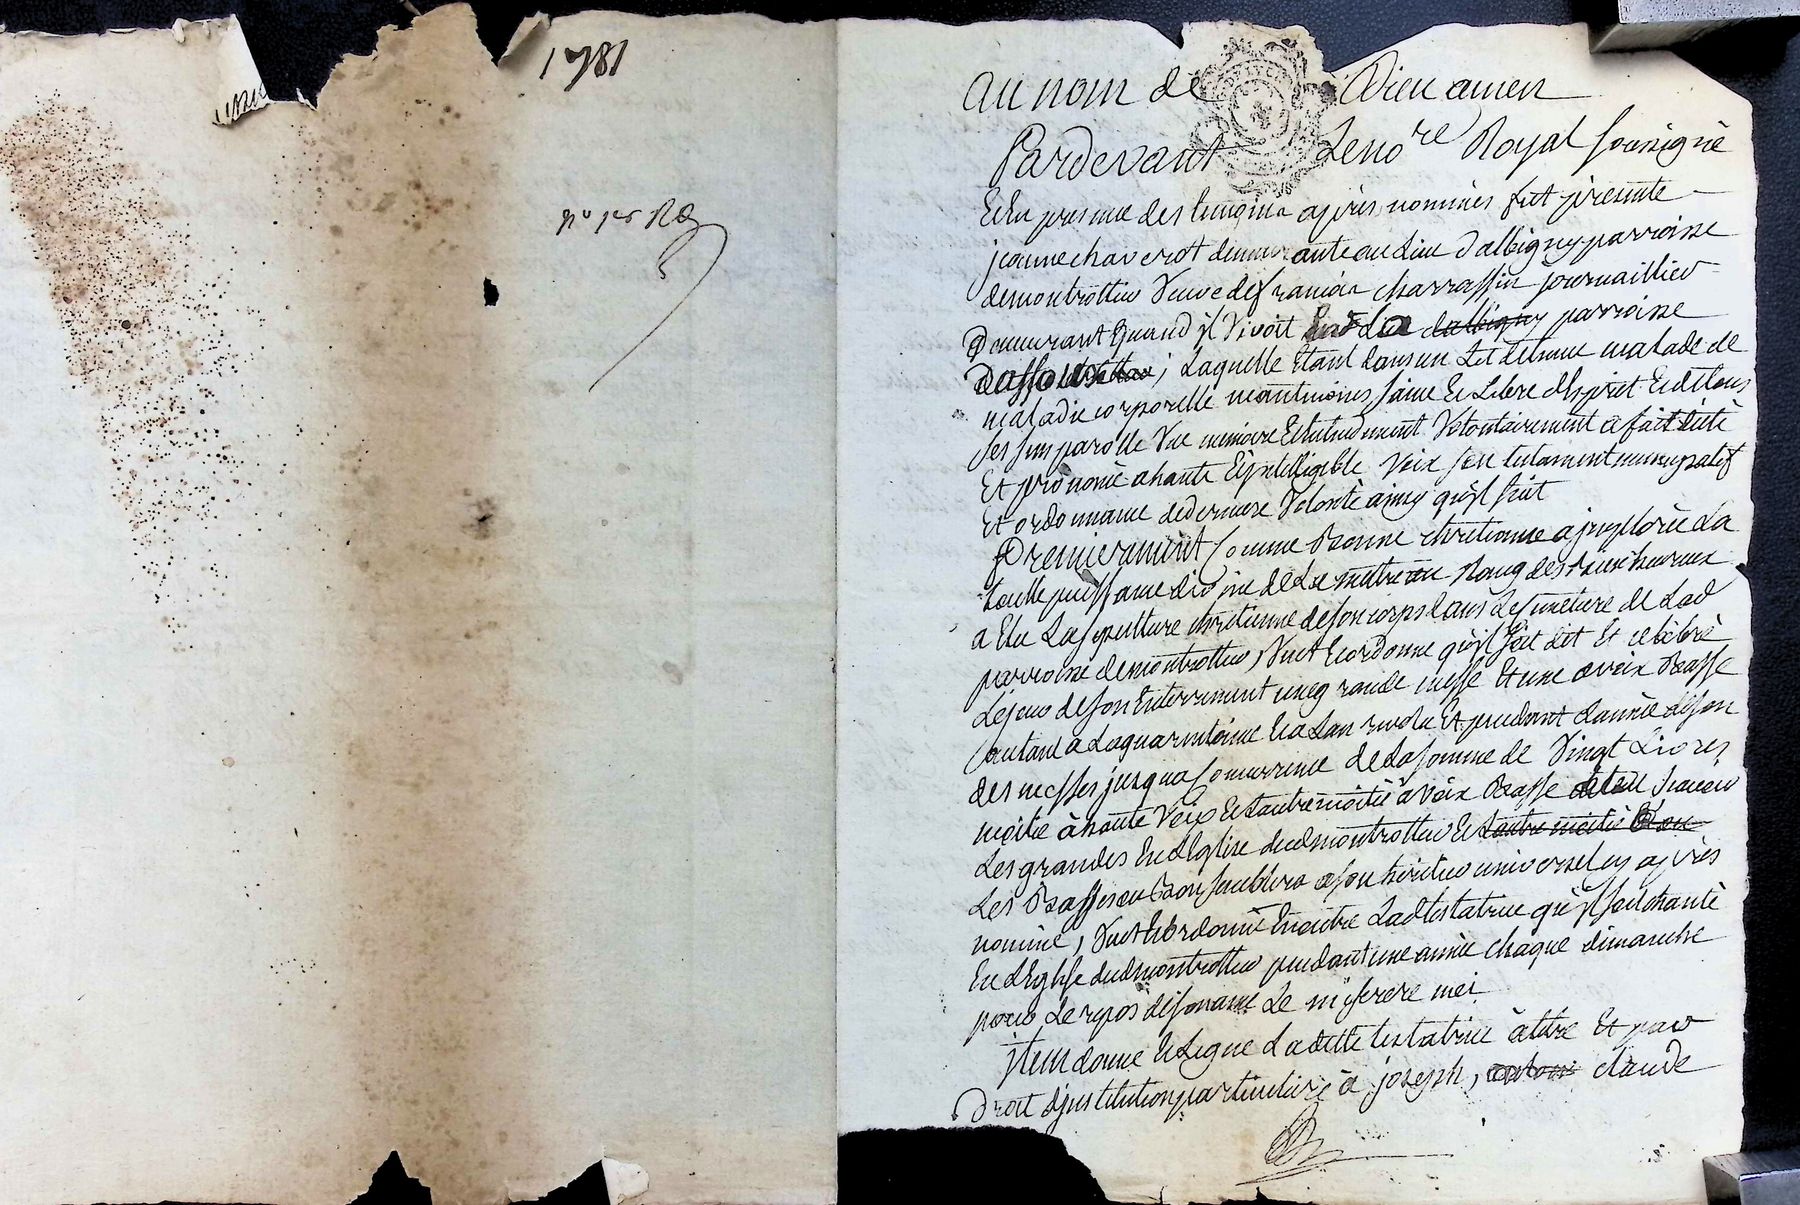 1781
au nom de Dieu amen
Pardevant Le no.re Royal soussigné
Et en presence des temoins après nommés fut presente
jeanne chaverot demeurante au Lieu d'albigny parroisse
de montrottier Veuve de francois charrassin journaillier
Demeurant quand jl Vivoit dalbigny parroisse
; Laquelle Etant dans un Lit detenue malade de
maladie corporelle neantmoins saine Et Libre d'Esprit Et de tous
ses sens parolle Vue memoire Et Entendement Volontairement a fait dicté
Et prononcé a haute Et jntelligible Voix son testament nuncupatif
Et ordonnance de derniere Volonté ainsy qu'jl suit
Premierement Comme Bonne chretienne a jmplorée La
toutte puissance divine de La mettre au Rang des Bienheureux
a Elu La sepulture chretienne de son corps dans Le simetiere de Lad
parroisse de montrottier, Veut Et ordonne qu'jl soit dit Et celebré
Le jour de son Enterrement une grande messe Et une a voix Basse
autant a La quarantaine Et a L'an revolu Et pendant L'année dison
des messes jusqua Concurrence de La somme de Vingt Livres
moitié à haute Voix Et L'autre moitié à Voix Basse scavoir
Les grandes En L'Eglise dud montrottier Et L'autre moitié
Les Basses ou Bon semblera a son heritier universel cy après
nommé, Veut Et ordonne En outre Lad testatrice qu'jl soit chanté
En L'Eglise dud montrottier pendant une année chaque dimanche
pour Le repos de son ame Le miserere mei
jtem donne Et Legue Laditte testatrice à titre Et par
Droit d'jnstitution particuliere à joseph, claude